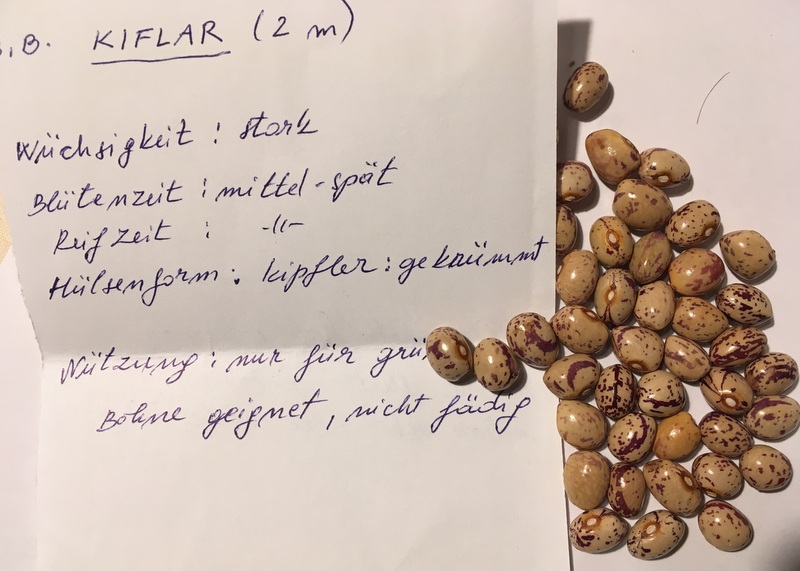 .B. KIFLAR (2 m)
Wüchsigkeit : stark
Blütenzeit : mittel-spät
Reifzeit : -//-
Hülsenform : kipfler : gekrümmt
Nützung : nur für grü
Bohne geignet, nicht fädig